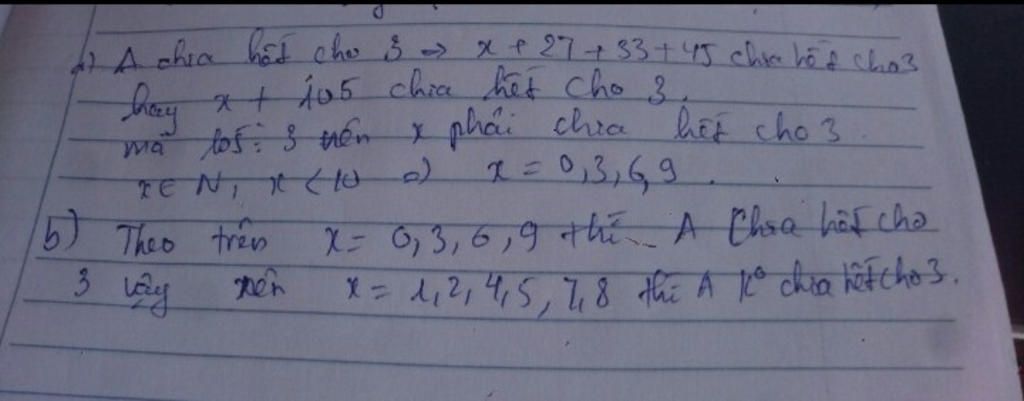 a) A chia hết cho 3 => x + 27 + 33 + 45 chia hết cho 3
hay x + 105 chia hết cho 3.
mà 105 ⋮ 3 nên x phải chia hết cho 3.
x ∈ N, x < 10 => x = 0,3,6,9.
b) Theo trên x = 0,3,6,9 thì A chia hết cho
3 vậy nên x = 1,2,4,5,7,8 thì A k° chia hết cho 3.